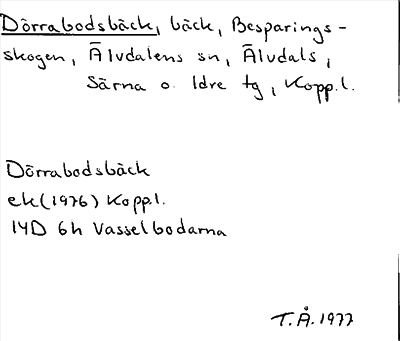 Dörrabodsbäck, bäck, Besparings-
skogen, Älvdalens sn, Älvdals,
Särna o. Idre tg, Kopp.l.
Dörrabodsbäck
ek(1976) Kopp.l.
14D 6h Vasselbodarna
T.Å.1977